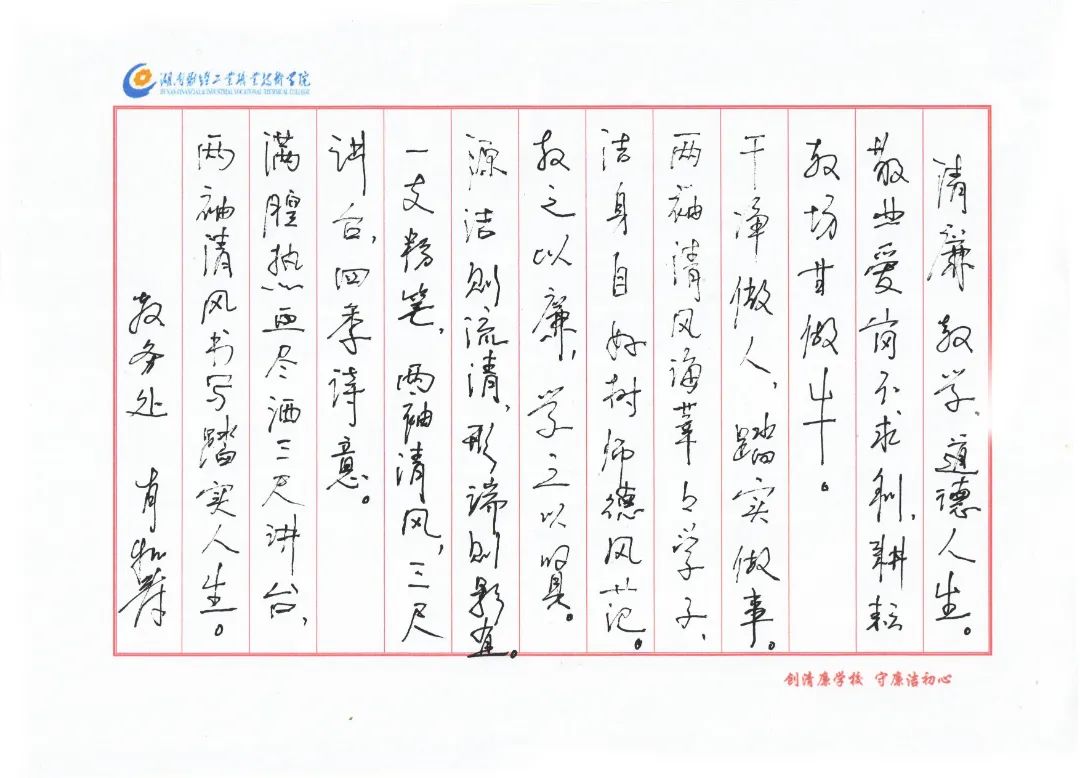 湖南财经工业职业技术学院
HUNAN FINANCIAL & INDUSTRIAL VOCATIONAL-TECHNICAL COLLEGE
清廉教学，道德人生。
敬业爱岗不求利，耕耘
教场甘做牛。
干净做人，踏实做事。
两袖清风诲莘莘学子，
洁身自好树师德风范。
教之以廉，学之以贤。
源洁则流清，形端则影直。
一支粉笔，两袖清风，三尺
讲台，四季诗意。
满腔热血尽洒三尺讲台，
两袖清风书写踏实人生。
教务处 肖
创清廉学校 守廉洁初心